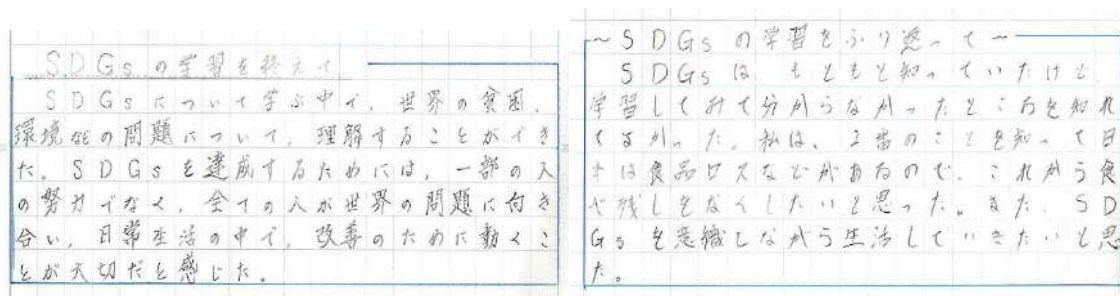 SDGsの学習を終えて
SDGsについて学ぶ中で、世界の貧困、
環境などの問題について、理解することができ
た。SDGsを達成するためには、一部の人
の努力でなく、全ての人が世界の問題に向き
合い、日常生活の中で、改善のために動くこ
とが大切だと感じた。
~SDGsの学習をふり返って~
SDGsは、もともと知っていたけど、
学習してみて分からなかったところを知れ
てよかった。私は、2番のことを知って日
本は食品ロスなどがあるので、これから食
べ残しをなくしたいと思った。また、SD
Gsを意識しながら生活していきたいと思
た。